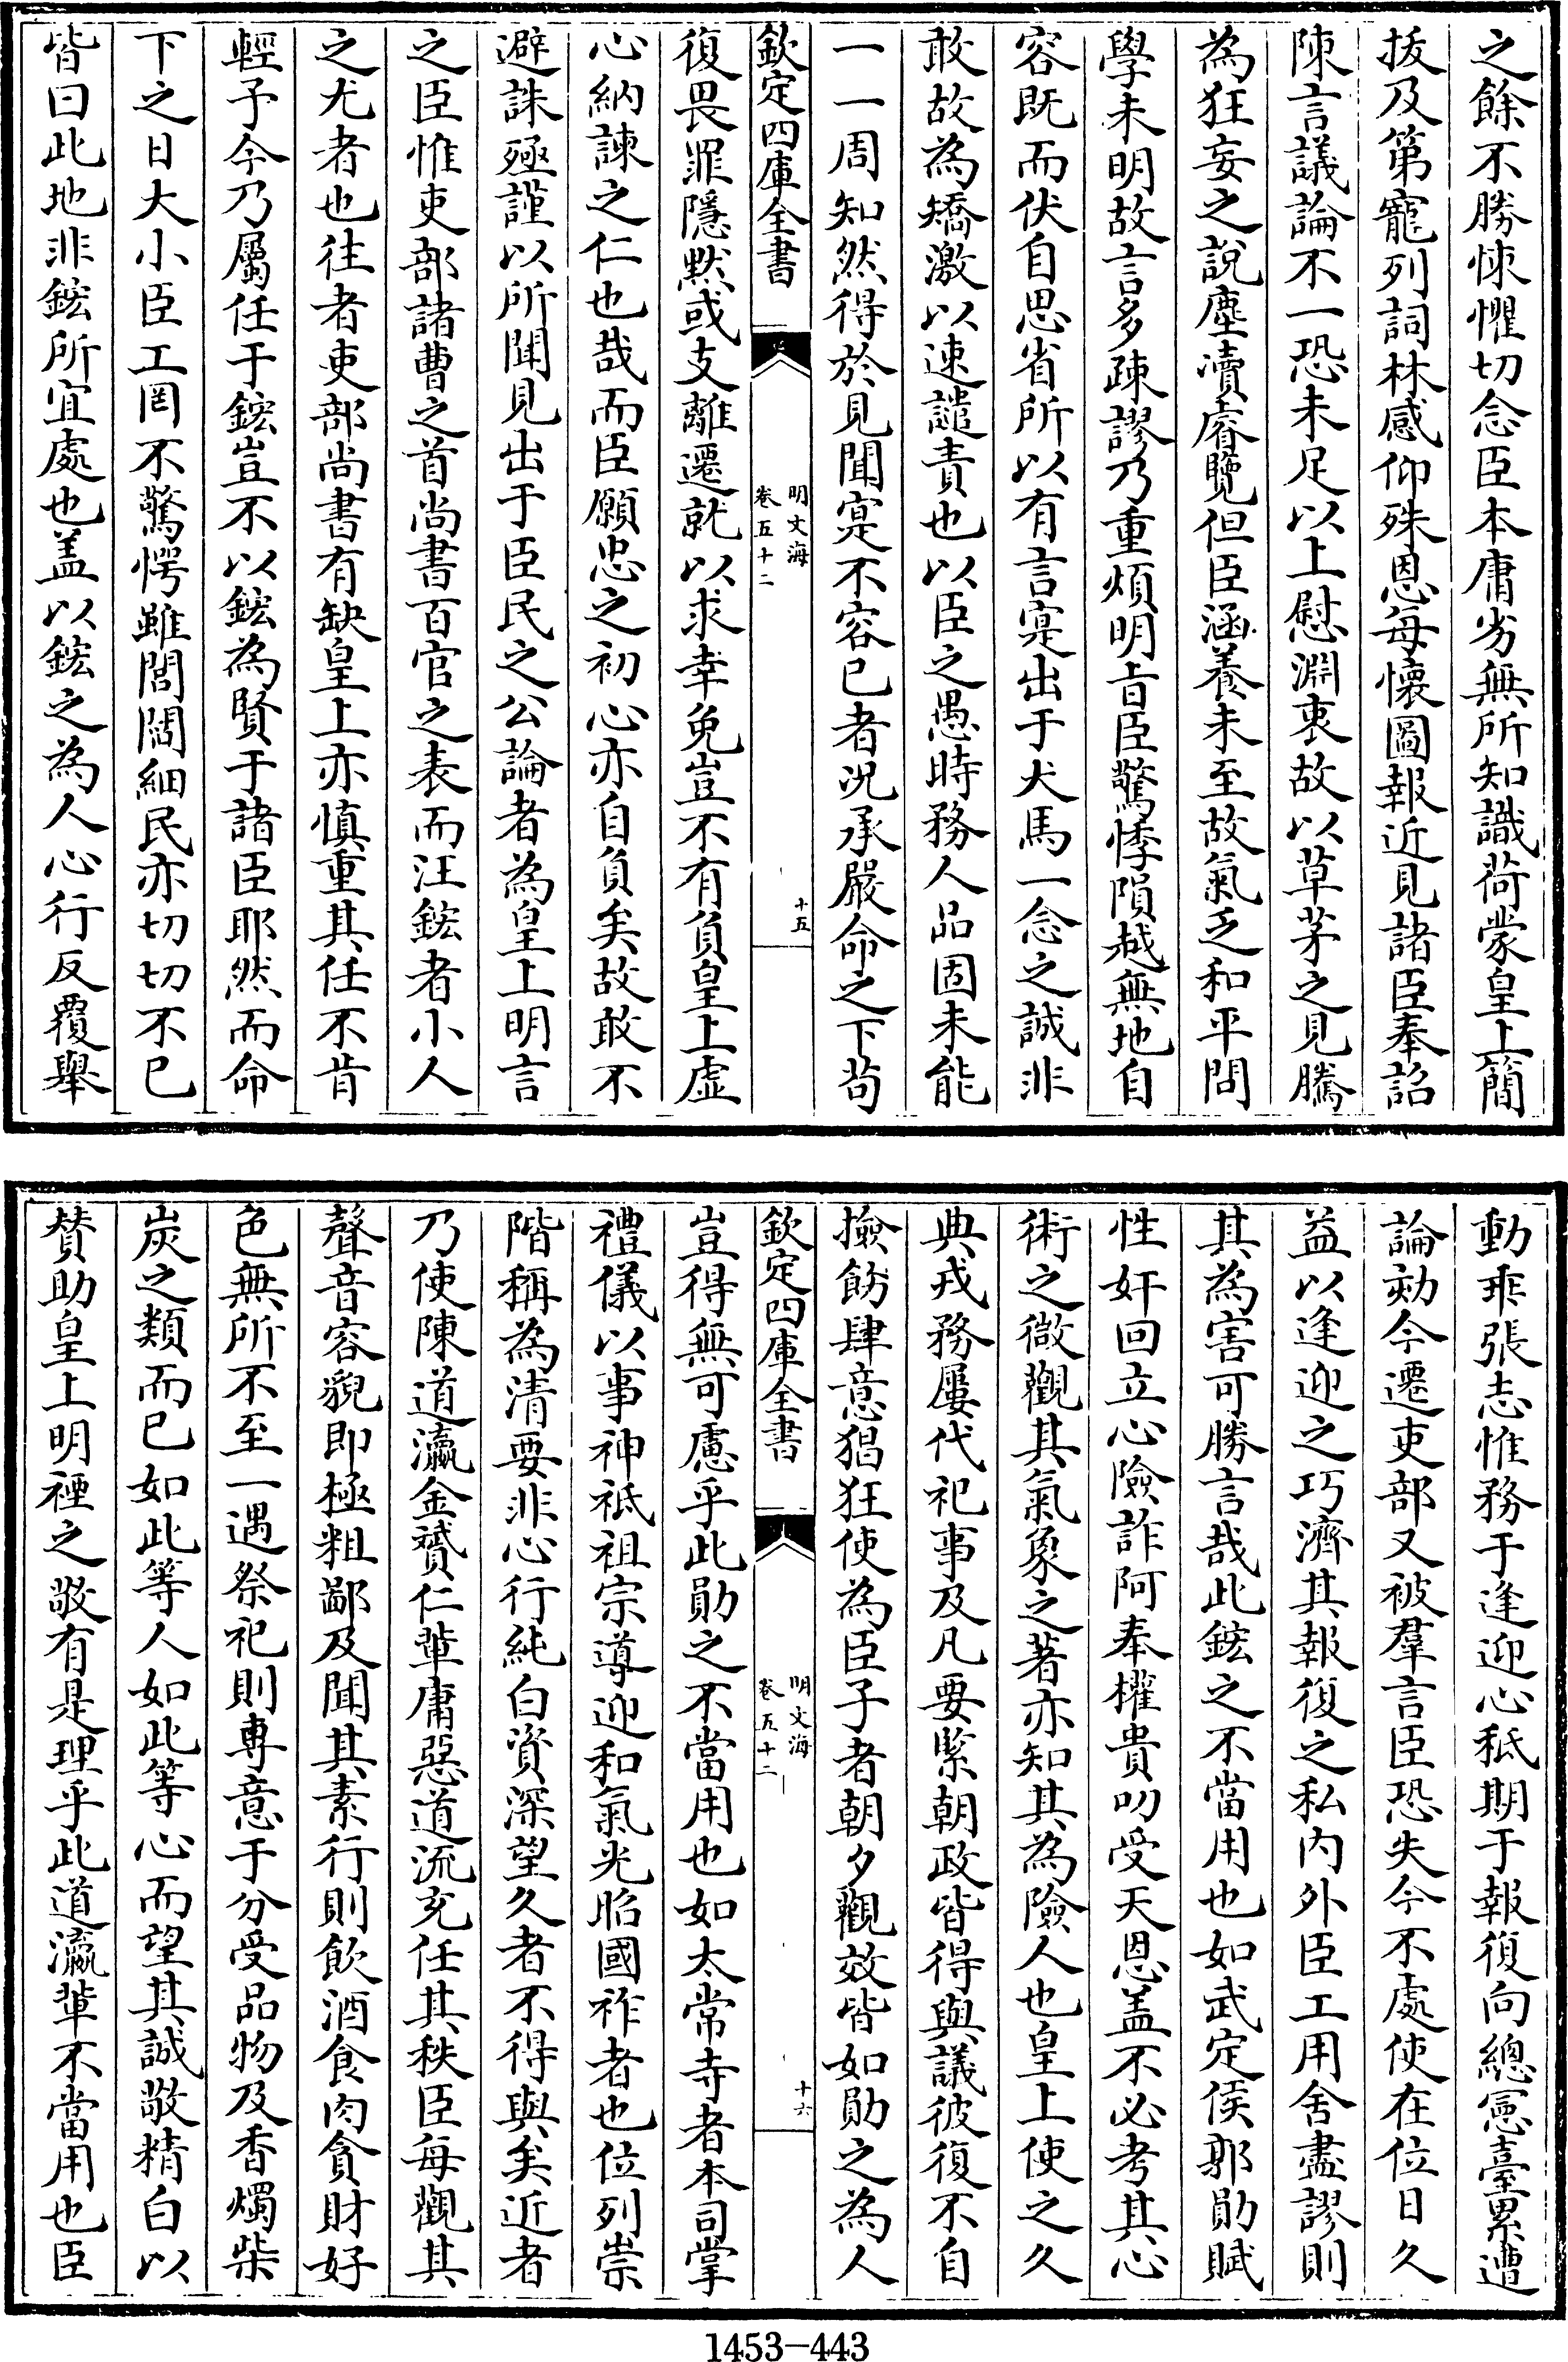 之餘不勝悚懼切念臣本庸劣無所知識荷蒙皇上簡
拔及第寵列詞林感仰殊恩每懷圖報近見諸臣奉詔
陳言議論不一恐未足以上慰淵衷故以草茅之見騰
為狂妄之說塵瀆睿覽但臣涵養未至故氣乏和平問
學未明故言多疎謬乃重煩明旨臣驚悸隕越無地自
容既而伏自思省所以有言寔出于犬馬一念之誠非
敢故為矯激以速譴責也以臣之愚時務人品固未能
一一周知然得於見聞寔不容已者况承嚴命之下茍
欽定四庫全書
明文海
卷五十二
十五
復畏罪隱默或支離遷就以求幸免豈不有負皇上虚
心納諫之仁也哉而臣願忠之初心亦自負矣故敢不
避誅殛謹以所聞見出于臣民之公論者為皇上明言
之臣惟吏部諸曹之首尚書百官之表而汪鋐者小人
之尤者也往者吏部尚書有缺皇上亦慎重其任不肯
輕予今乃屬任于鋐豈不以鋐為賢于諸臣耶然而命
下之日大小臣工罔不驚愕雖閭閻細民亦切切不已
皆曰此地非鋐所宜處也盖以鋐之為人心行反覆舉
動乖張志惟務于逢迎心秪期于報復向總憲臺累遭
論劾今遷吏部又被羣言臣恐失今不處使在位日久
益以逢迎之巧濟其報復之私内外臣工用舍盡謬則
其為害可勝言哉此鋐之不當用也如武定侯郭勛賦
性奸回立心險詐阿奉權貴叨受天恩盖不必考其心
術之微觀其氣象之著亦知其為險人也皇上使之久
典戎務屢代祀事及凡要緊朝政皆得與議彼復不自
撿飭肆意猖狂使為臣子者朝夕觀效皆如勛之為人
欽定四庫全書
明文海
卷五十二
十六
豈得無可慮乎此勛之不當用也如太常寺者本司掌
禮儀以事神祗祖宗導迎和氣光昭國祚者也位列崇
階稱為清要非心行純白資深望久者不得與矣近者
乃使陳道瀛金贇仁軰庸惡道流充任其秩臣每觀其
聲音容貌即極粗鄙及聞其素行則飲酒食肉貪財好
色無所不至一遇祭祀則專意于分受品物及香燭柴
炭之類而已如此等人如此等心而望其誠敬精白以
賛助皇上明禋之敬有是理乎此道瀛軰不當用也臣
1453-443